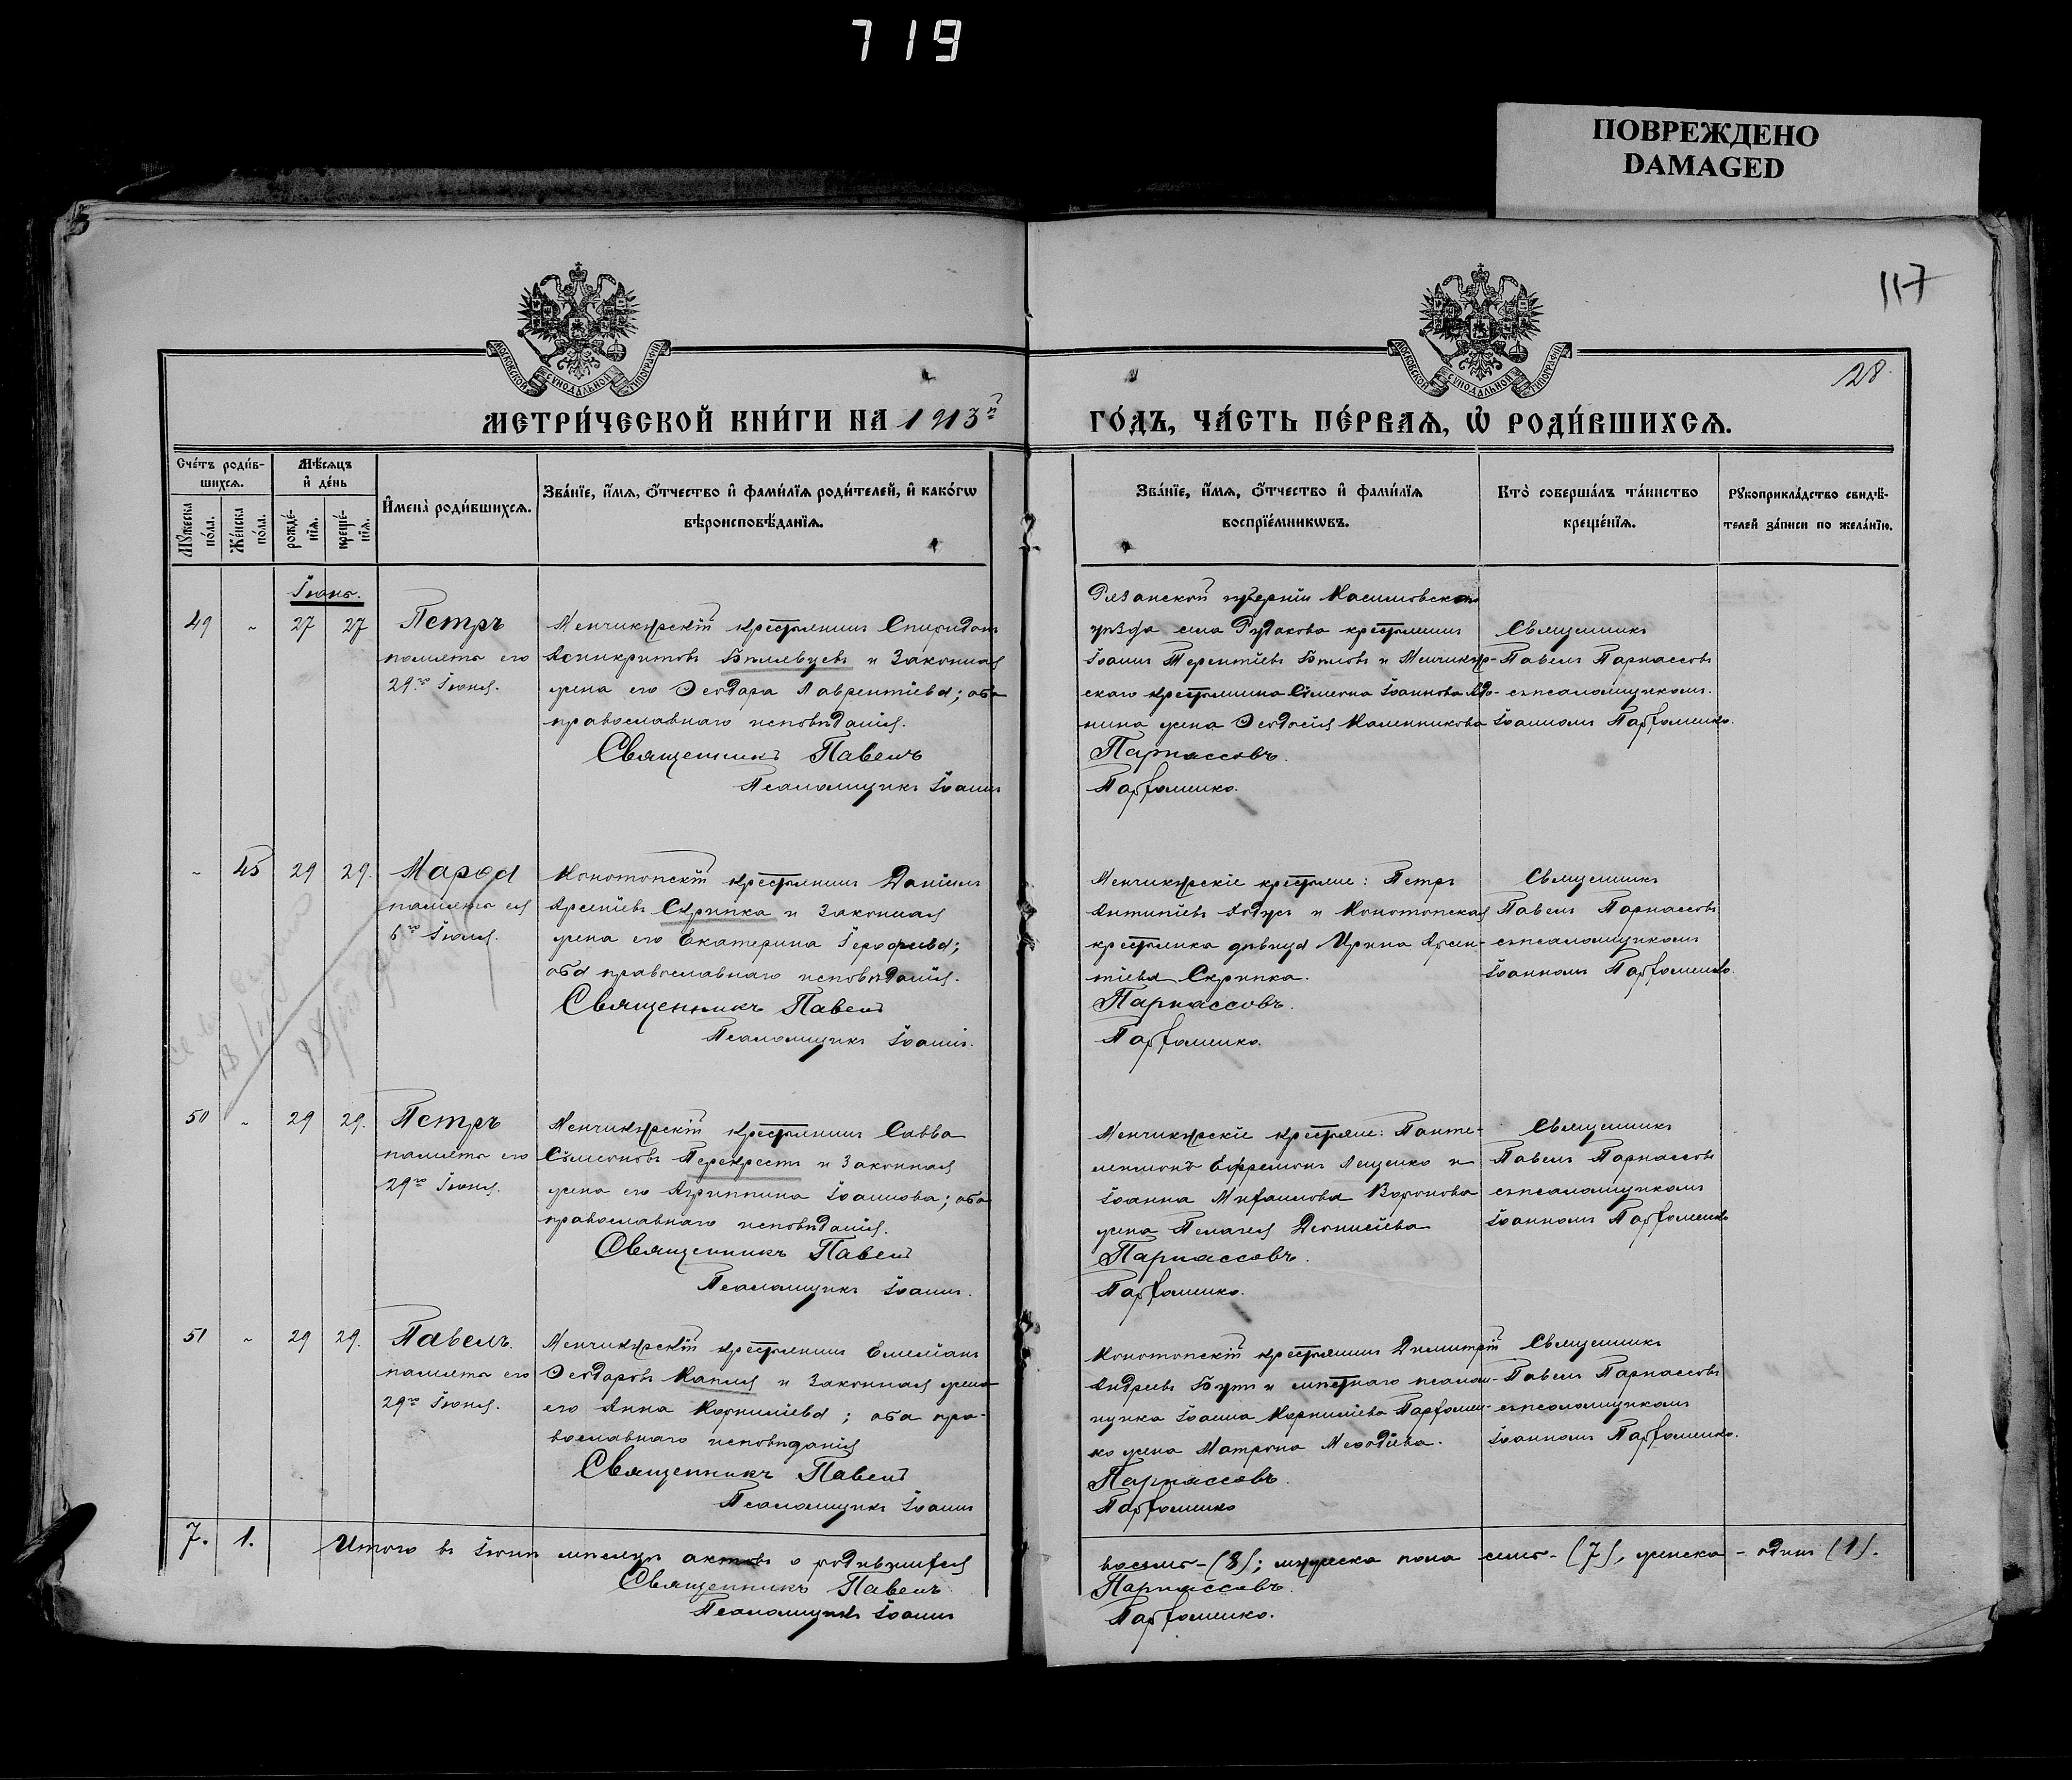 719
ПОВРЕЖДЕНО
DAMAGED
117
МОСКОВСКОЙ СѴНОДАЛЬНОЙ ТИПОГРАФІИ
МОСКОВСКОЙ СѴНОДАЛЬНОЙ ТИПОГРАФІИ
28
МЕТРИ́ЧЕСКОЙ КНИ́ГИ НА 1913й
ГО́ДЪ, ЧА́СТЬ ПЕ́РВАѦ, Ѡ҆ РОДИ́ВШИХСѦ.
Сче́тъ роди́в-
шихсѧ.
Мꙋжеска по́ла.
Же́нска по́ла.
Мѣ́сѧцъ
и҆ де́нь
рожде́-нїѧ.
креще́-нїѧ.
И҆мена̀ роди́вшихсѧ.
Зва́нїе, и҆́мѧ, ѻ҆́тчество и҆ фами́лїѧ роди́телей, и҆ како́гѡ
вѣроисповѣ́данїѧ.
Зва́нїе, и҆́мѧ, ѻ҆́тчество и҆ фами́лїѧ
воспрїе́мникѡвъ.
Кто̀ соверша́лъ та́инство
креще́нїѧ.
Рꙋкоприкла́дство свидѣ́-
телей за́писи по жела́нїю.
Іюнь.
49 " 27 27
Петръ
память его
29го Іюня.
Менчикурскій крестьянинъ Спиридонъ
Асинкритовъ Бѣлевцевъ и законная
жена его Ѳеодора Лаврентіева; оба
православнаго исповѣданія.
Священникъ Павелъ
Псаломщикъ Іоаннъ
Рязанской губерніи Касимовскаго
уѣзда села Рудакова крестьянинъ
Іоаннъ Терентіевъ Бѣловъ и Менчикур-
скаго крестьянина Сѵмеона Іоаннова Адо-
нина жена Ѳеодосія Калинникова
Парнассовъ.
Парфоменко.
Священникъ
Павелъ Парнассовъ
съ псаломщикомъ
Іоанномъ Парфоменко.
" 45 29 29.
Марѳа
память ея
6го Іюля.
Конотопскій крестьянинъ Даніилъ
Арсеніевъ Скрипка и законная
жена его Екатерина Іероѳеева;
оба православнаго исповѣданія.
Священникъ Павелъ
Псаломщикъ Іоаннъ.
Менчикурскіе крестьяне: Петръ
Антипіевъ Ходусъ и Конотопская
крестьянка дѣвица Ирина Арсен-
тіева Скрипка.
Парнассовъ.
Парфоменко.
Священникъ
Павелъ Парнассовъ
съ псаломщикомъ
Іоанномъ Парфоменко.
50 " 29 29.
Петръ
память его
29го Іюня.
Менчикурскій крестьянинъ Савва
Сѵмеоновъ Перекрестъ и законная
жена его Агриппина Іоаннова; оба
православнаго исповѣданія.
Священникъ Павелъ
Псаломщикъ Іоаннъ.
Менчикурскіе крестьяне: Панте-
леимонъ Ефремовъ Лещенко и
Іоанна Михаилова Воронова
жена Пелагея Діонисіева
Парнассовъ.
Парфоменко.
Священникъ
Павелъ Парнассовъ
съ псаломщикомъ
Іоанномъ Парфоменко
51 " 29 29.
Павелъ.
память его
29го Іюня.
Менчикурскій крестьянинъ Емеліанъ
Ѳеодоровъ Капля и законная жена
его Анна Корниліева; оба пра-
вославнаго исповѣданія
Священникъ Павелъ
Псаломщикъ Іоаннъ
Конотопскій крестьянинъ Димитрій
Андреевъ Бутъ и мѣстнаго псалом-
щика Іоанна Корниліева Парфомен-
ко жена Матрона Меѳодіева.
Парнассовъ.
Парфоменко
Священникъ
Павелъ Парнассовъ
съ псаломщикомъ
Іоанномъ Парфоменко.
7. 1. Итого въ Іюнѣ мѣсяцѣ актовъ о родившихся
восемь-(8); мужеска пола семь-(7), женска - одинъ (1).
Священникъ Павелъ
Псаломщикъ Іоаннъ
Парнассовъ.
Парфоменко.